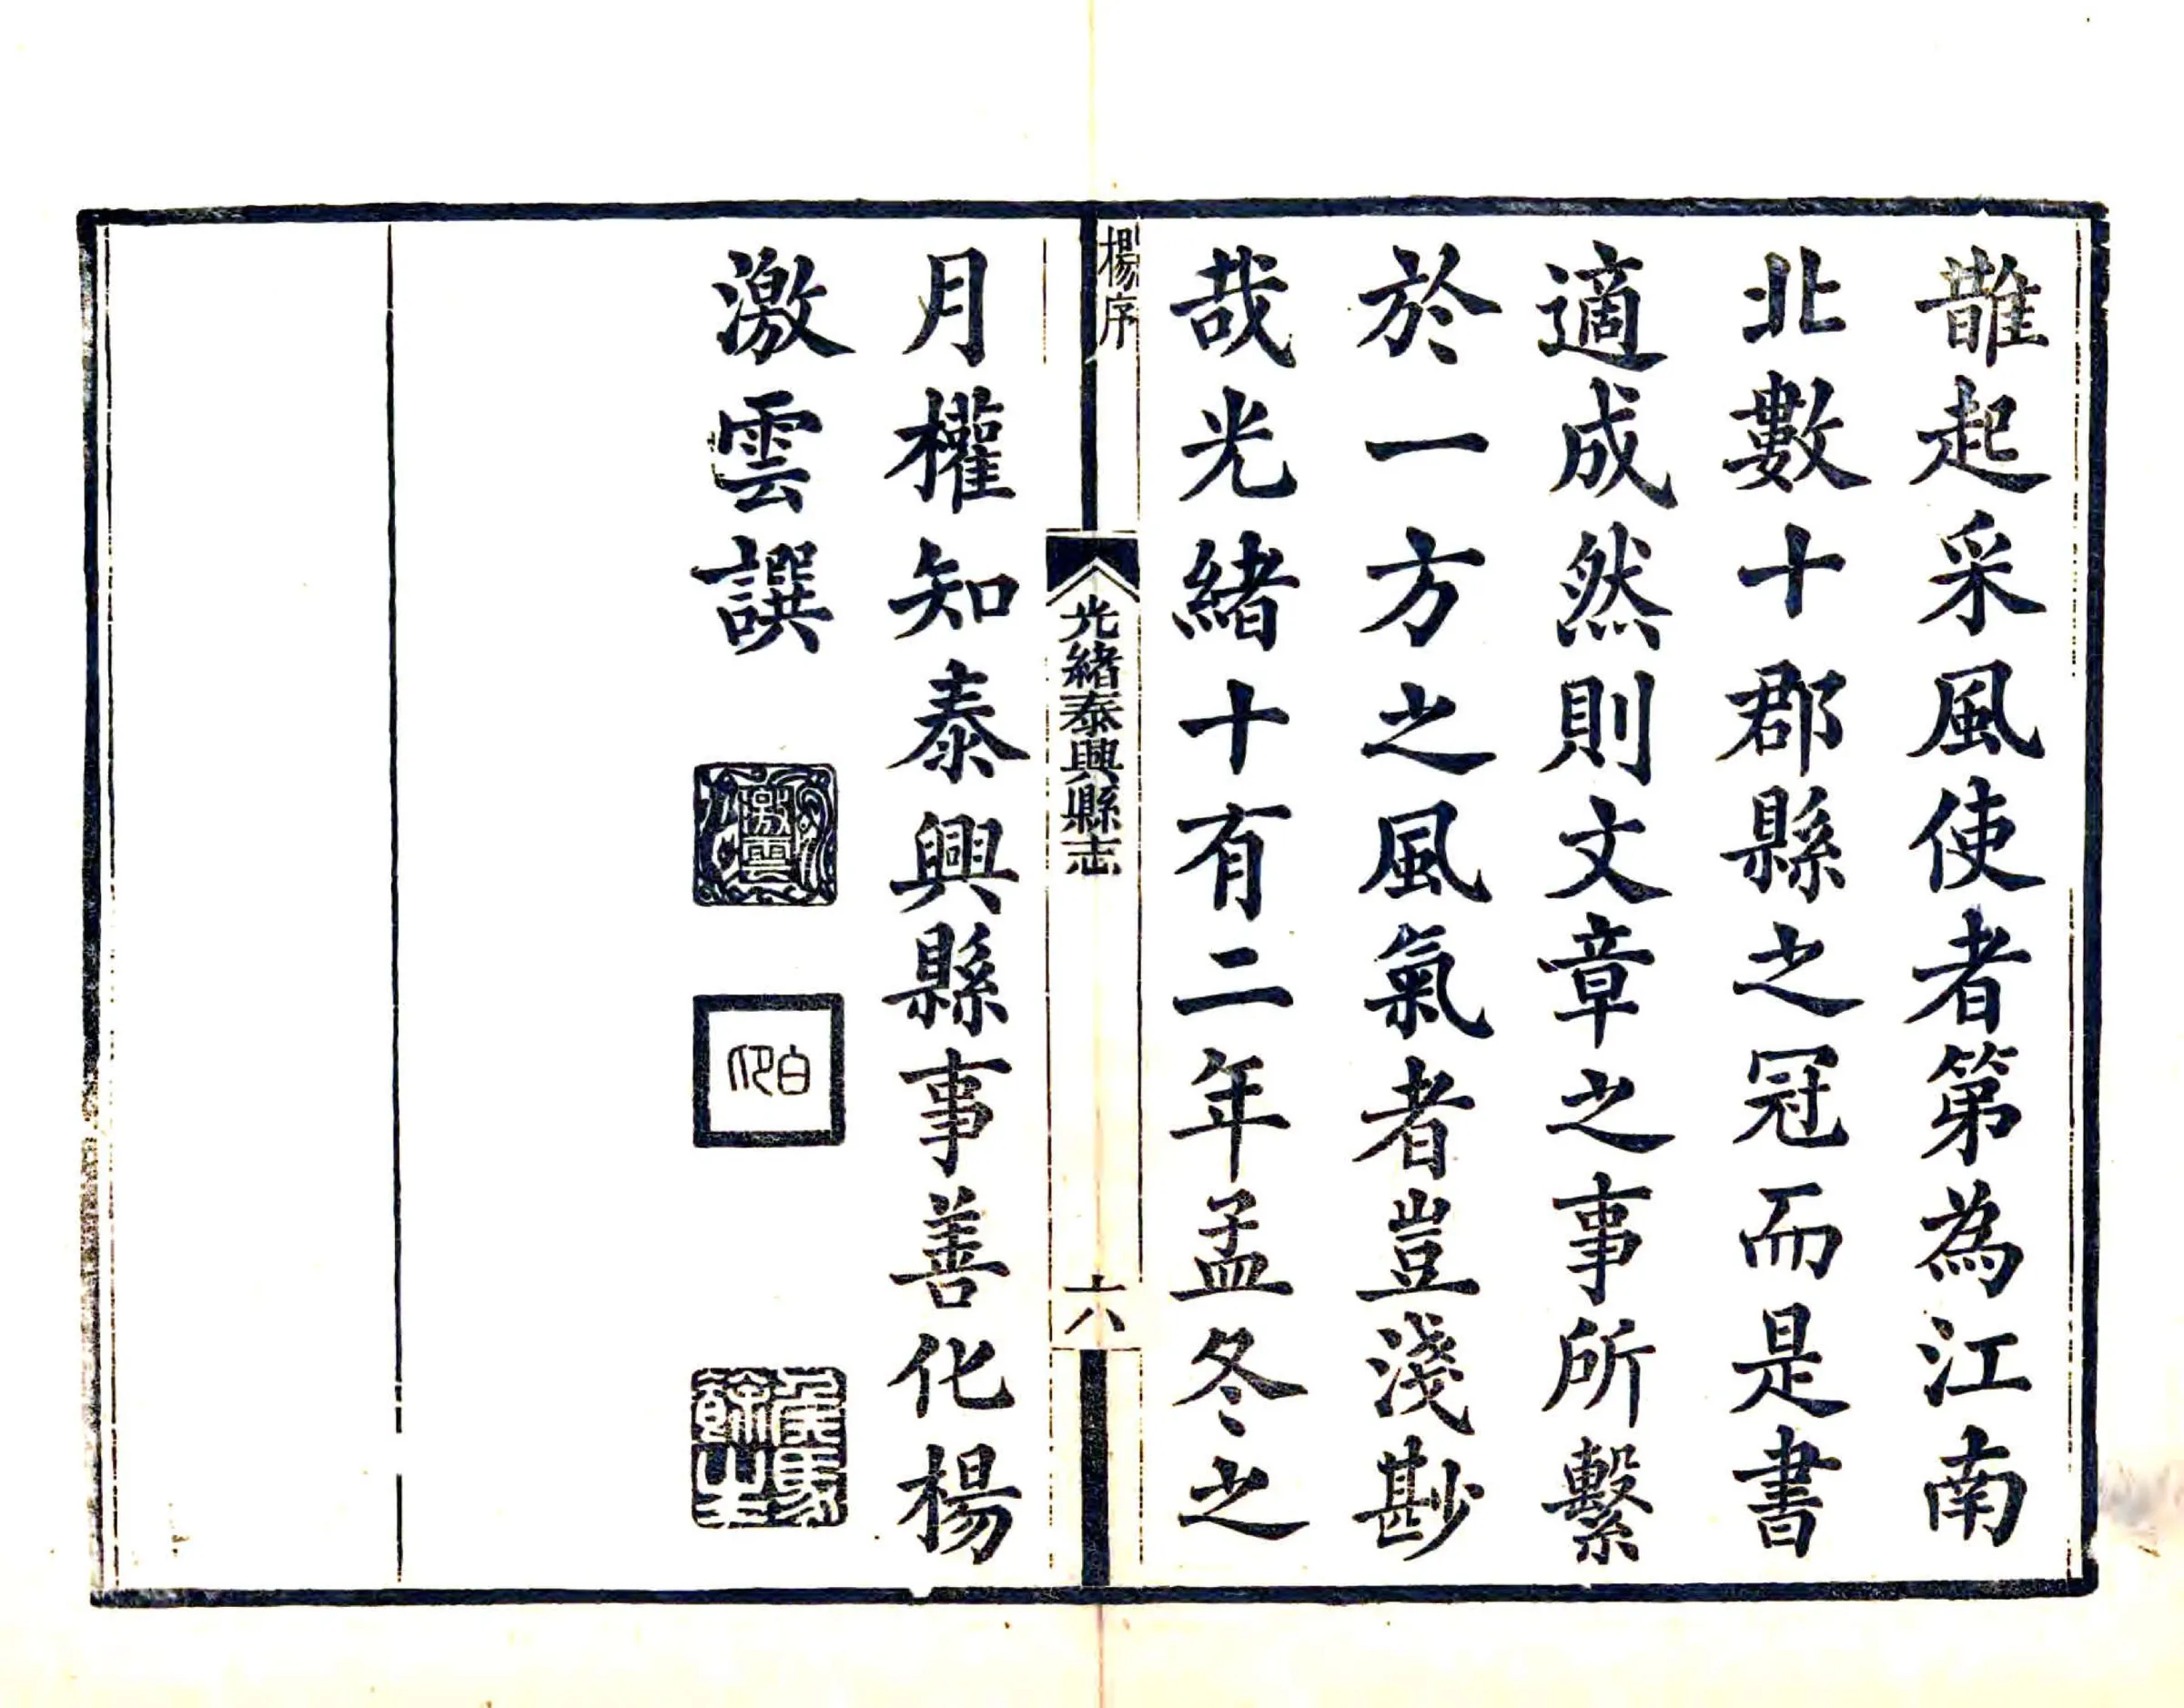 䧿起采風使者第為江南
北數十郡縣之冠而是書
適成然則文章之事所繫
於一方之風氣者豈淺尠
哉光緒十有二年孟冬之
楊序
光緒泰興縣志
六
月權知泰興縣事善化楊
激雲譔
激雲